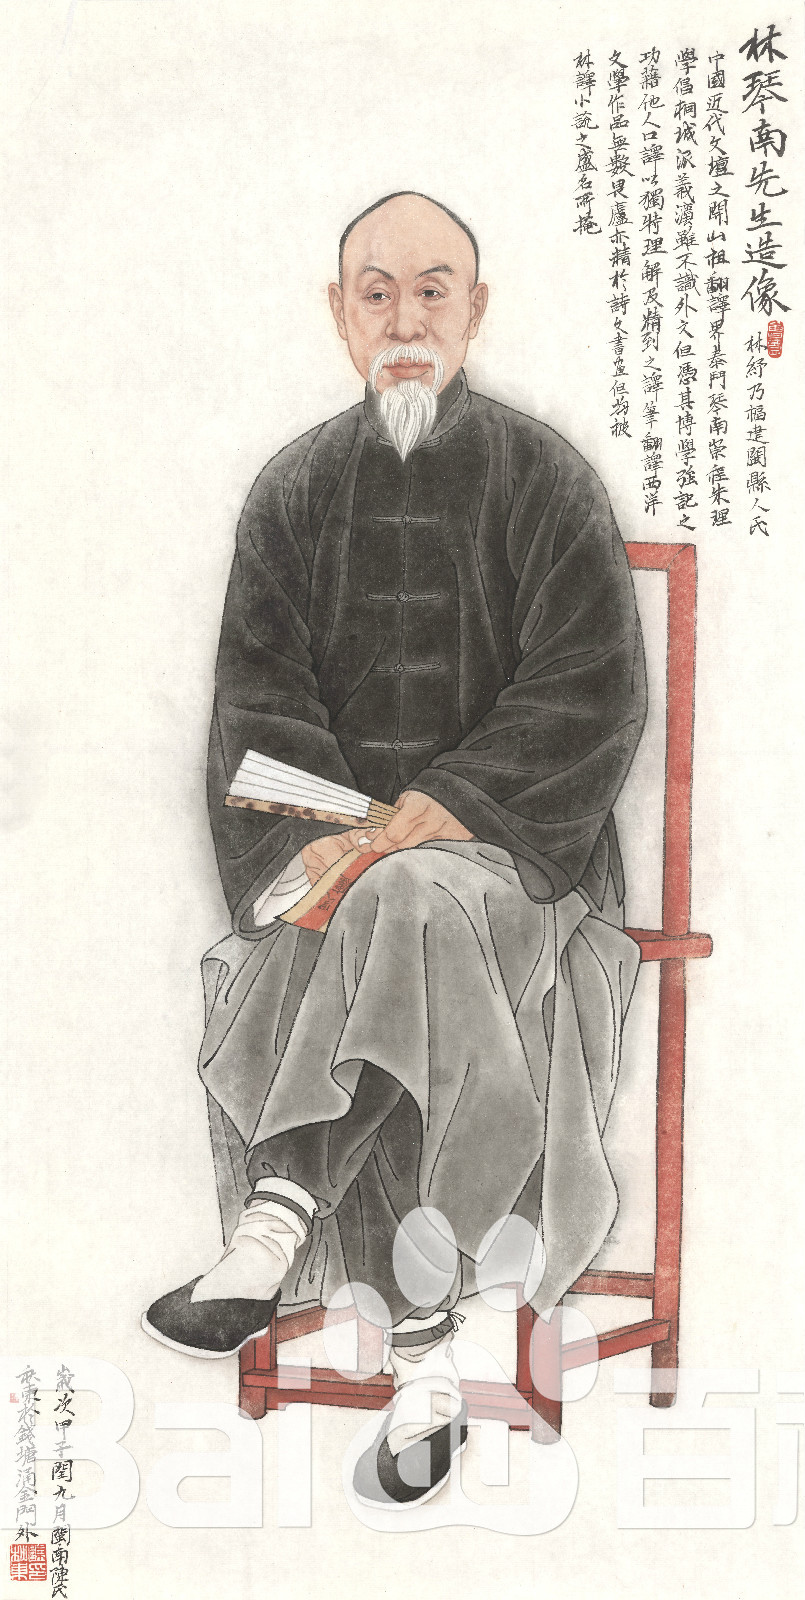 林琴南先生造像
林紓乃福建閩縣人氏
中國近代文壇之開山祖翻譯界泰鬥琴南崇程朱理
學倡桐城派義澫雖不識外文但憑其博學強記之
功藉他人口譯以獨特理解及精到之譯筆翻譯西洋
文學作品無數畏廬亦精於詩文書畫但為被
林譯小說之盛名所掩
歲次甲子閏九月閩南陳氏
林東於錢塘涌金門外
Bai
百